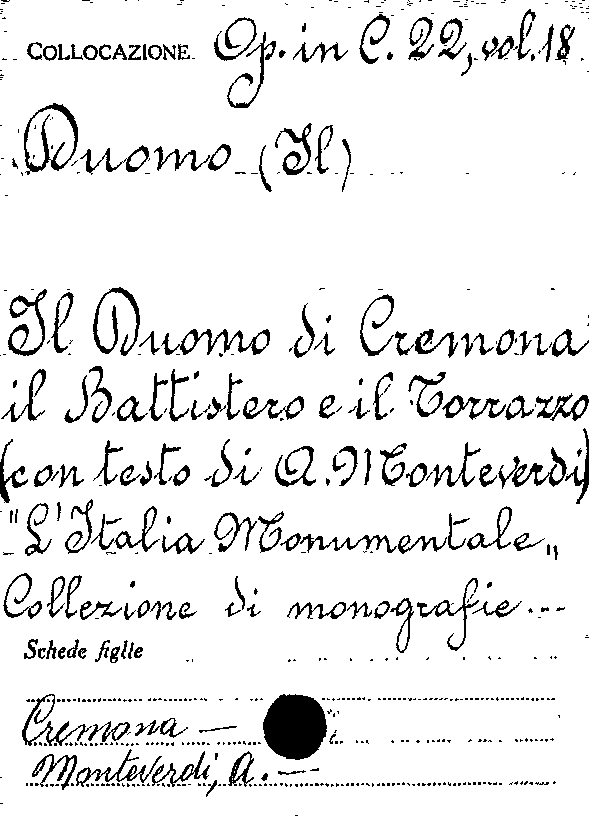 COLLOCAZIONE Op. in C. 22, vol. 18
Duomo (Il)
Il Duomo di Cremona
il Battistero e il Torrazzo
(con testo di A. Monteverdi)
"L'Italia Monumentale„
Collezione di monografie...
Schede figlie
Cremona —
Monteverdi, A. —